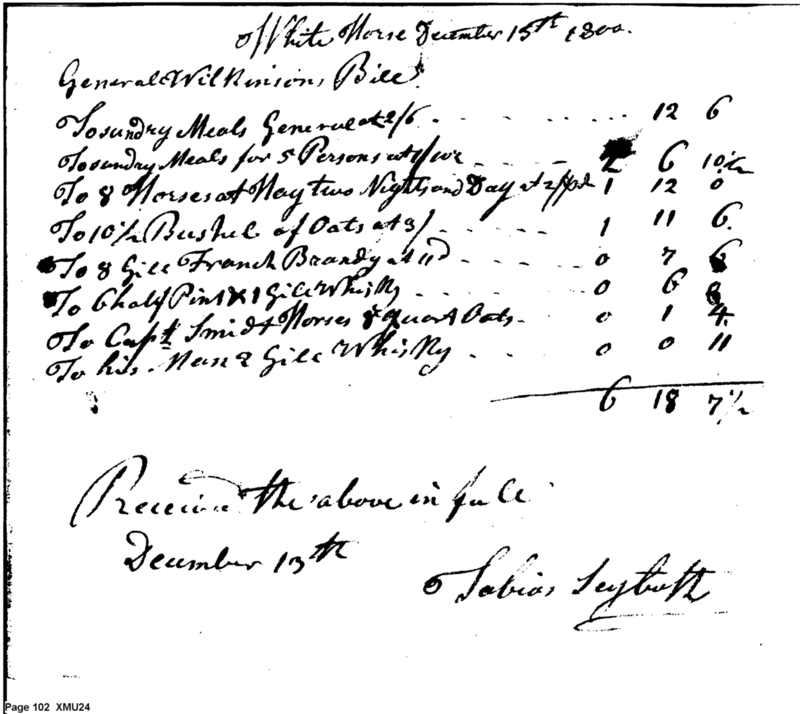 White Horse December 15th 1800.
General Wilkinsons Bill
To sundry Meals General at 2/6 . . . . . . . 12 6
To sundry Meals for 5 Persons at 1/10½ . . . . 2 6 10½
To 8 Horses at Hay two Nights and Day at 2/ 1 12 0
To 10½ Bushel of Oats at 3/ . . . . . 1 11 6.
To 8 Gill Franch Brandy at 11d . . . . 0 7
To 6 half Pint & 1 Gill Whisky . . . . . 0 6 8
To Capt Smidt Horses 8 quart Oats. 0 1 4
To his Man 2 Gill Whisky . . . . 0 0 11
6 18 7½
Received the above in full
December 15th
Tobias Seyboth
Page 102 XMU24